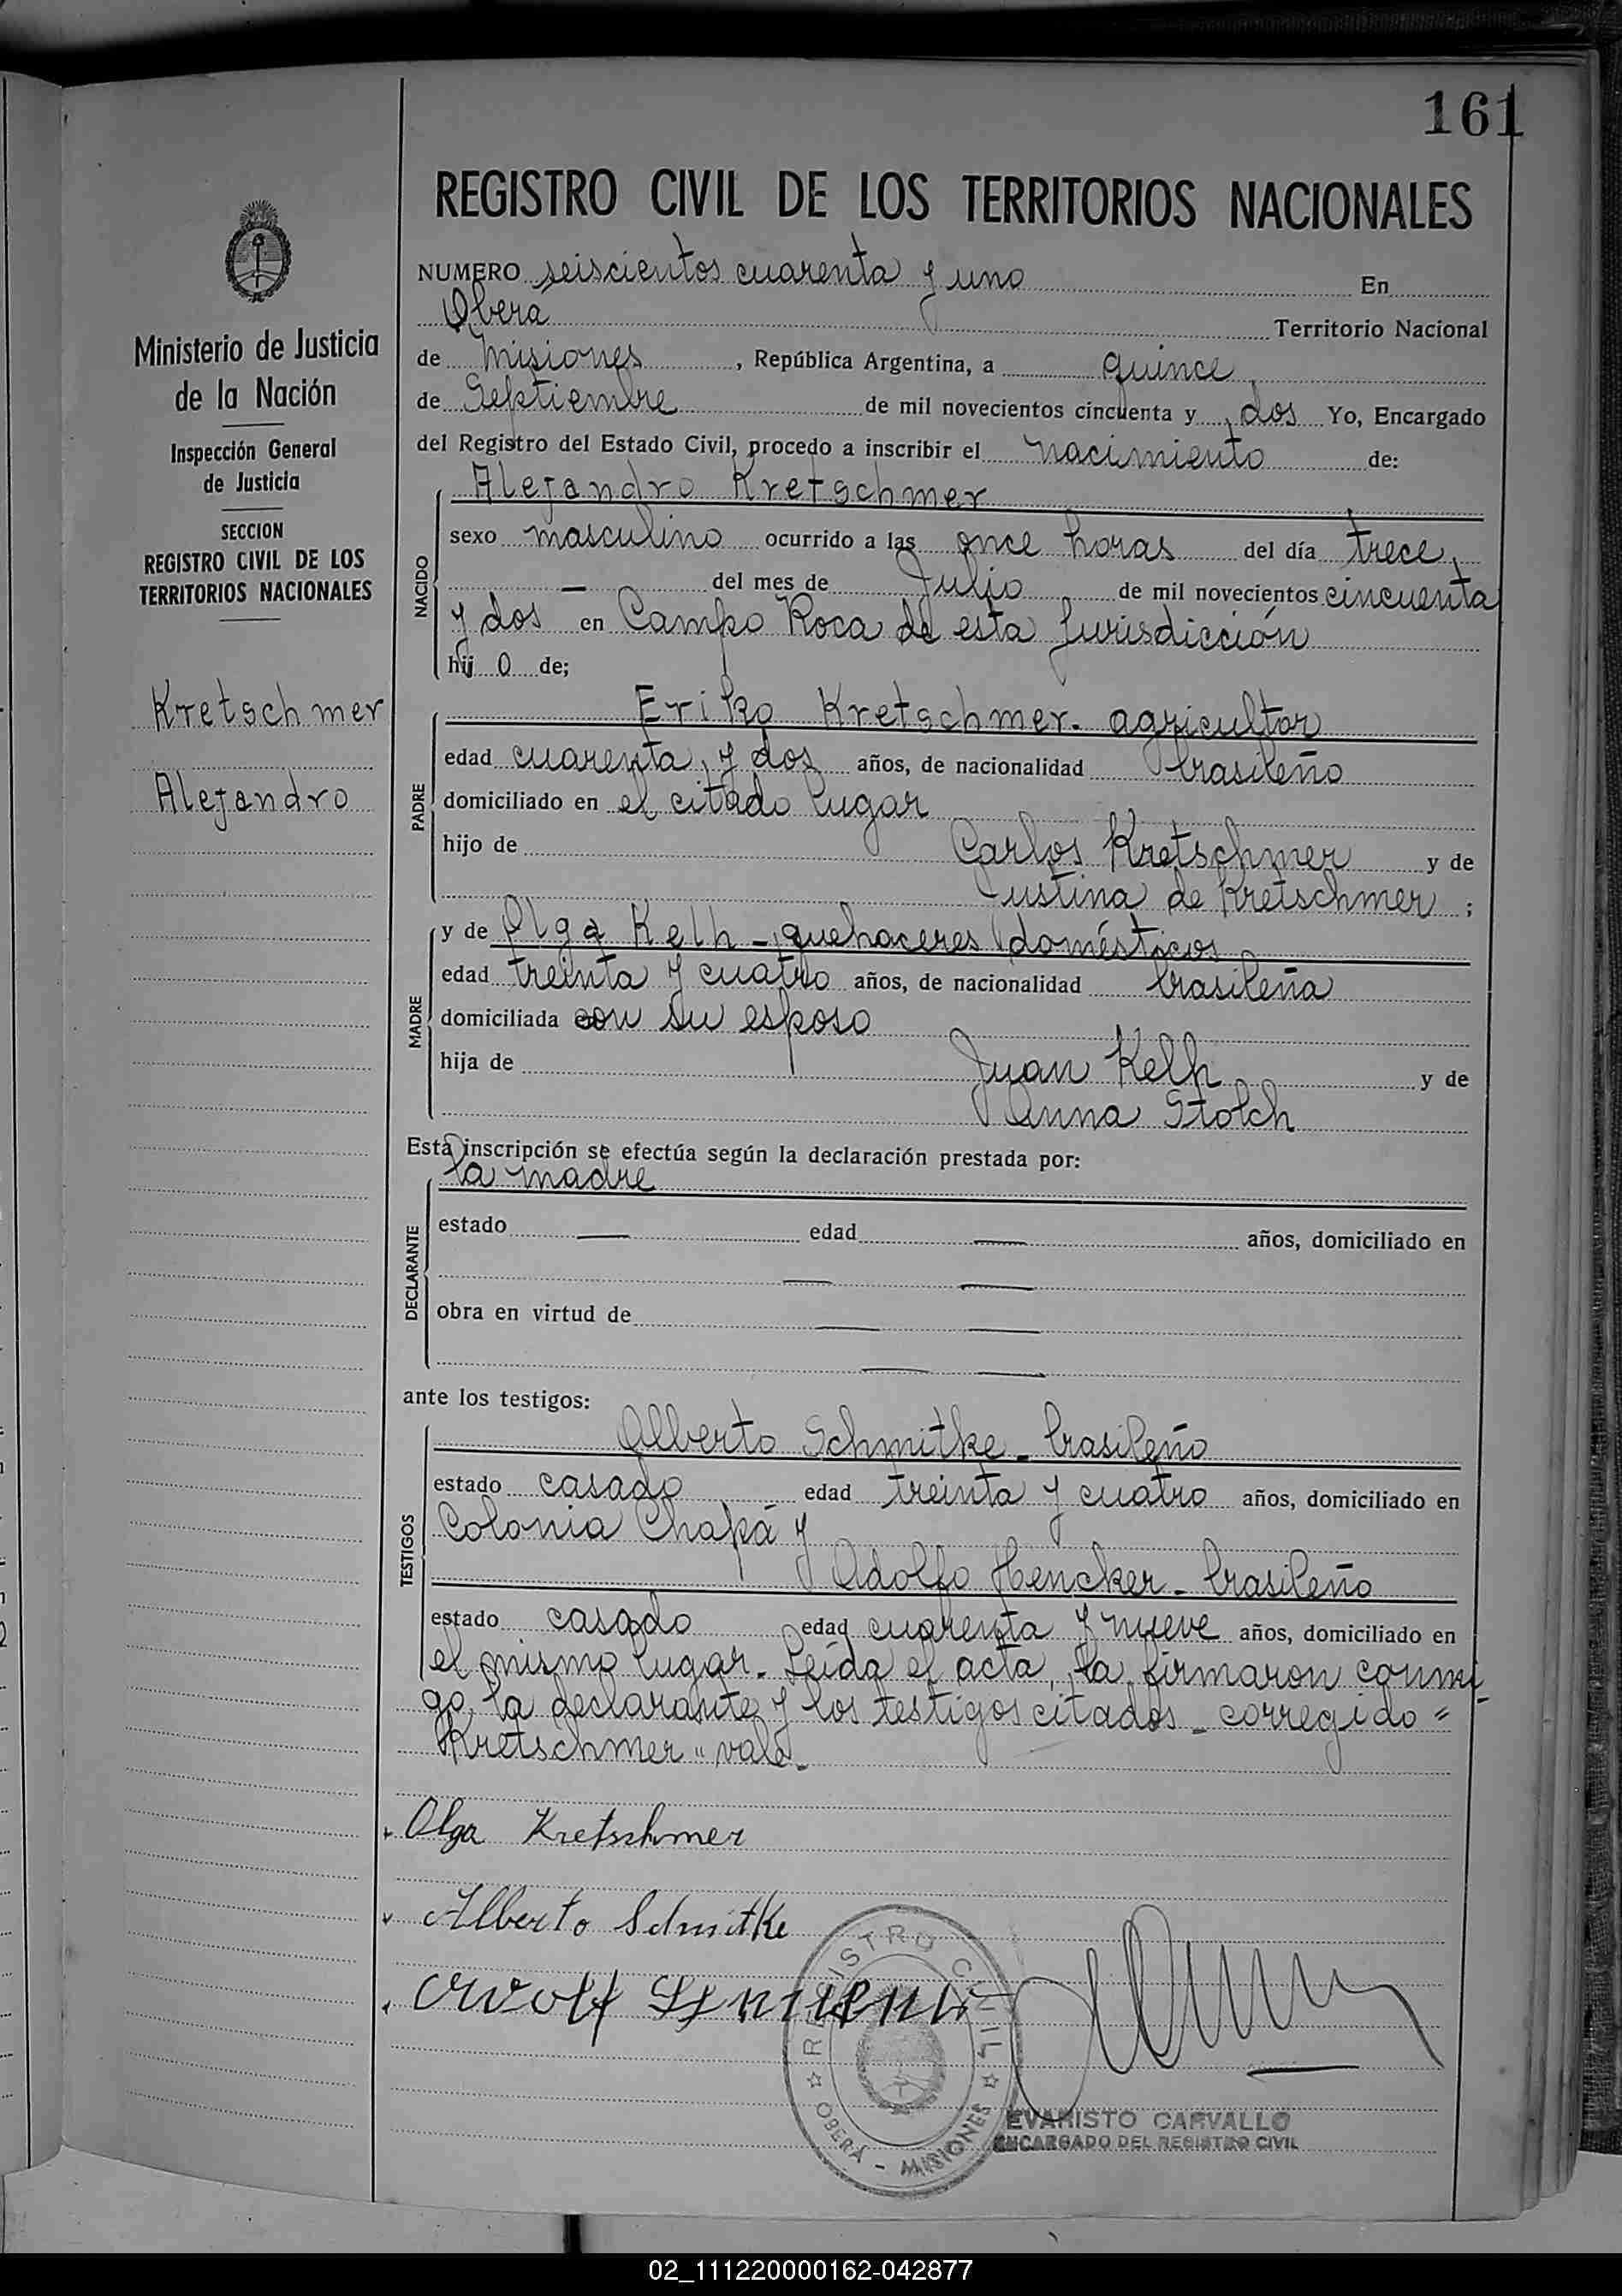 161
REGISTRO CIVIL DE LOS TERRITORIOS NACIONALES
Ministerio de Justicia
de la Nación
Inspección General
de Justicia
SECCION
REGISTRO CIVIL DE LOS
TERRITORIOS NACIONALES
Kretschmer
Alejandro
NUMERO seiscientos cuarenta y uno En
Oberá Territorio Nacional
de Misiones, República Argentina, a quince
de Septiembre de mil novecientos cincuenta y dos Yo, Encargado
del Registro del Estado Civil, procedo a inscribir el nacimiento de:
Alejandro Kretschmer
NACIDO
sexo masculino ocurrido a las once horas del día trece
— del mes de Julio de mil novecientos cincuenta
y dos en Campo Roca de esta Jurisdicción
hij o de;
PADRE
Eriko Kretschmer - agricultor
edad cuarenta y dos años, de nacionalidad brasileño
domiciliado en el citado lugar
hijo de Carlos Kretschmer y de
Justina de Kretschmer ;
MADRE
y de Olga Kelh - quehaceres domésticos
edad treinta y cuatro años, de nacionalidad brasileña
domiciliada con su esposo
hija de Juan Kelh y de
Anna Stolch
Esta inscripción se efectúa según la declaración prestada por:
la madre
DECLARANTE
estado — edad — años, domiciliado en
— —
obra en virtud de — —
— —
ante los testigos:
TESTIGOS
Alberto Schmitke - brasileño
estado casado edad treinta y cuatro años, domiciliado en
Colonia Chapá y
Adolfo Hencker - brasileño
estado casado edad cuarenta y nueve años, domiciliado en
el mismo lugar. Leída el acta, la firmaron conmi-
go, la declarante y los testigos citados - corregido "
Kretschmer" vale.
Olga Kretschmer
Alberto Schmitke
REGISTRO CIVIL
OBERÁ - MISIONES
EVARISTO CARVALLO
ENCARGADO DEL REGISTRO CIVIL
02_111220000162-042877